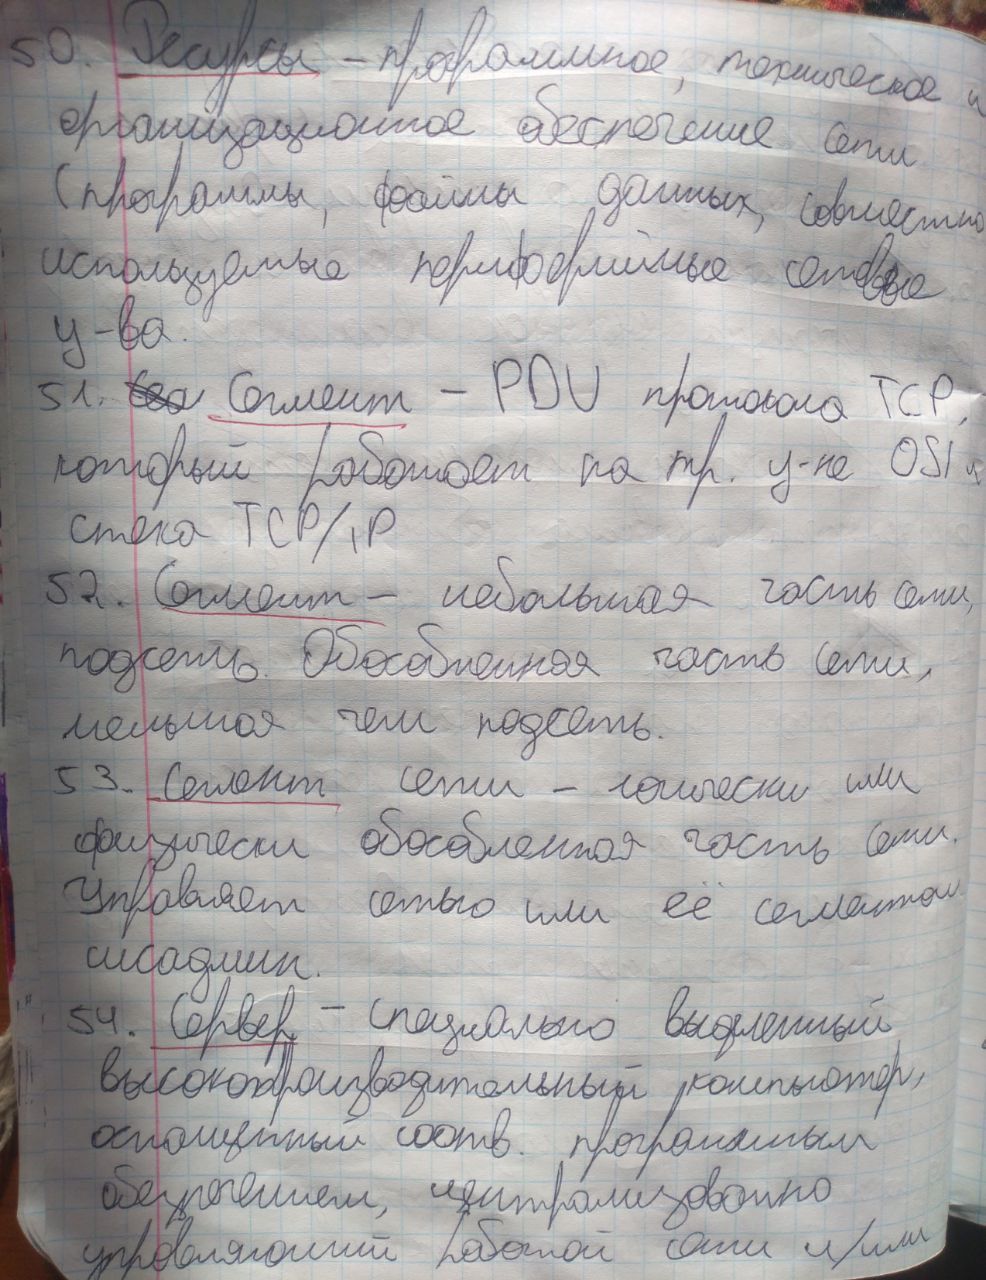 50. Ресурсы – программное, техническое и
организационное обеспечение сети
(программы, файлы данных, совместно
используемые периферийные сетевые
у-ва.
51. Сегмент – PDU протокола TCP,
который работает на тр. у-не OSI и
стека TCP/IP
52. Сегмент – небольшая часть сети,
подсеть. Обособленная часть сети,
меньшая чем подсеть.
53. Сегмент сети – логически или
физически обособленная часть сети.
Управляет сетью или её сегментом
сисадмин.
54. Сервер – специально выделенный
высокопроизводительный компьютер,
оснащенный соотв. программным
обеспечением, централизованно
управляющий работой сети и/или